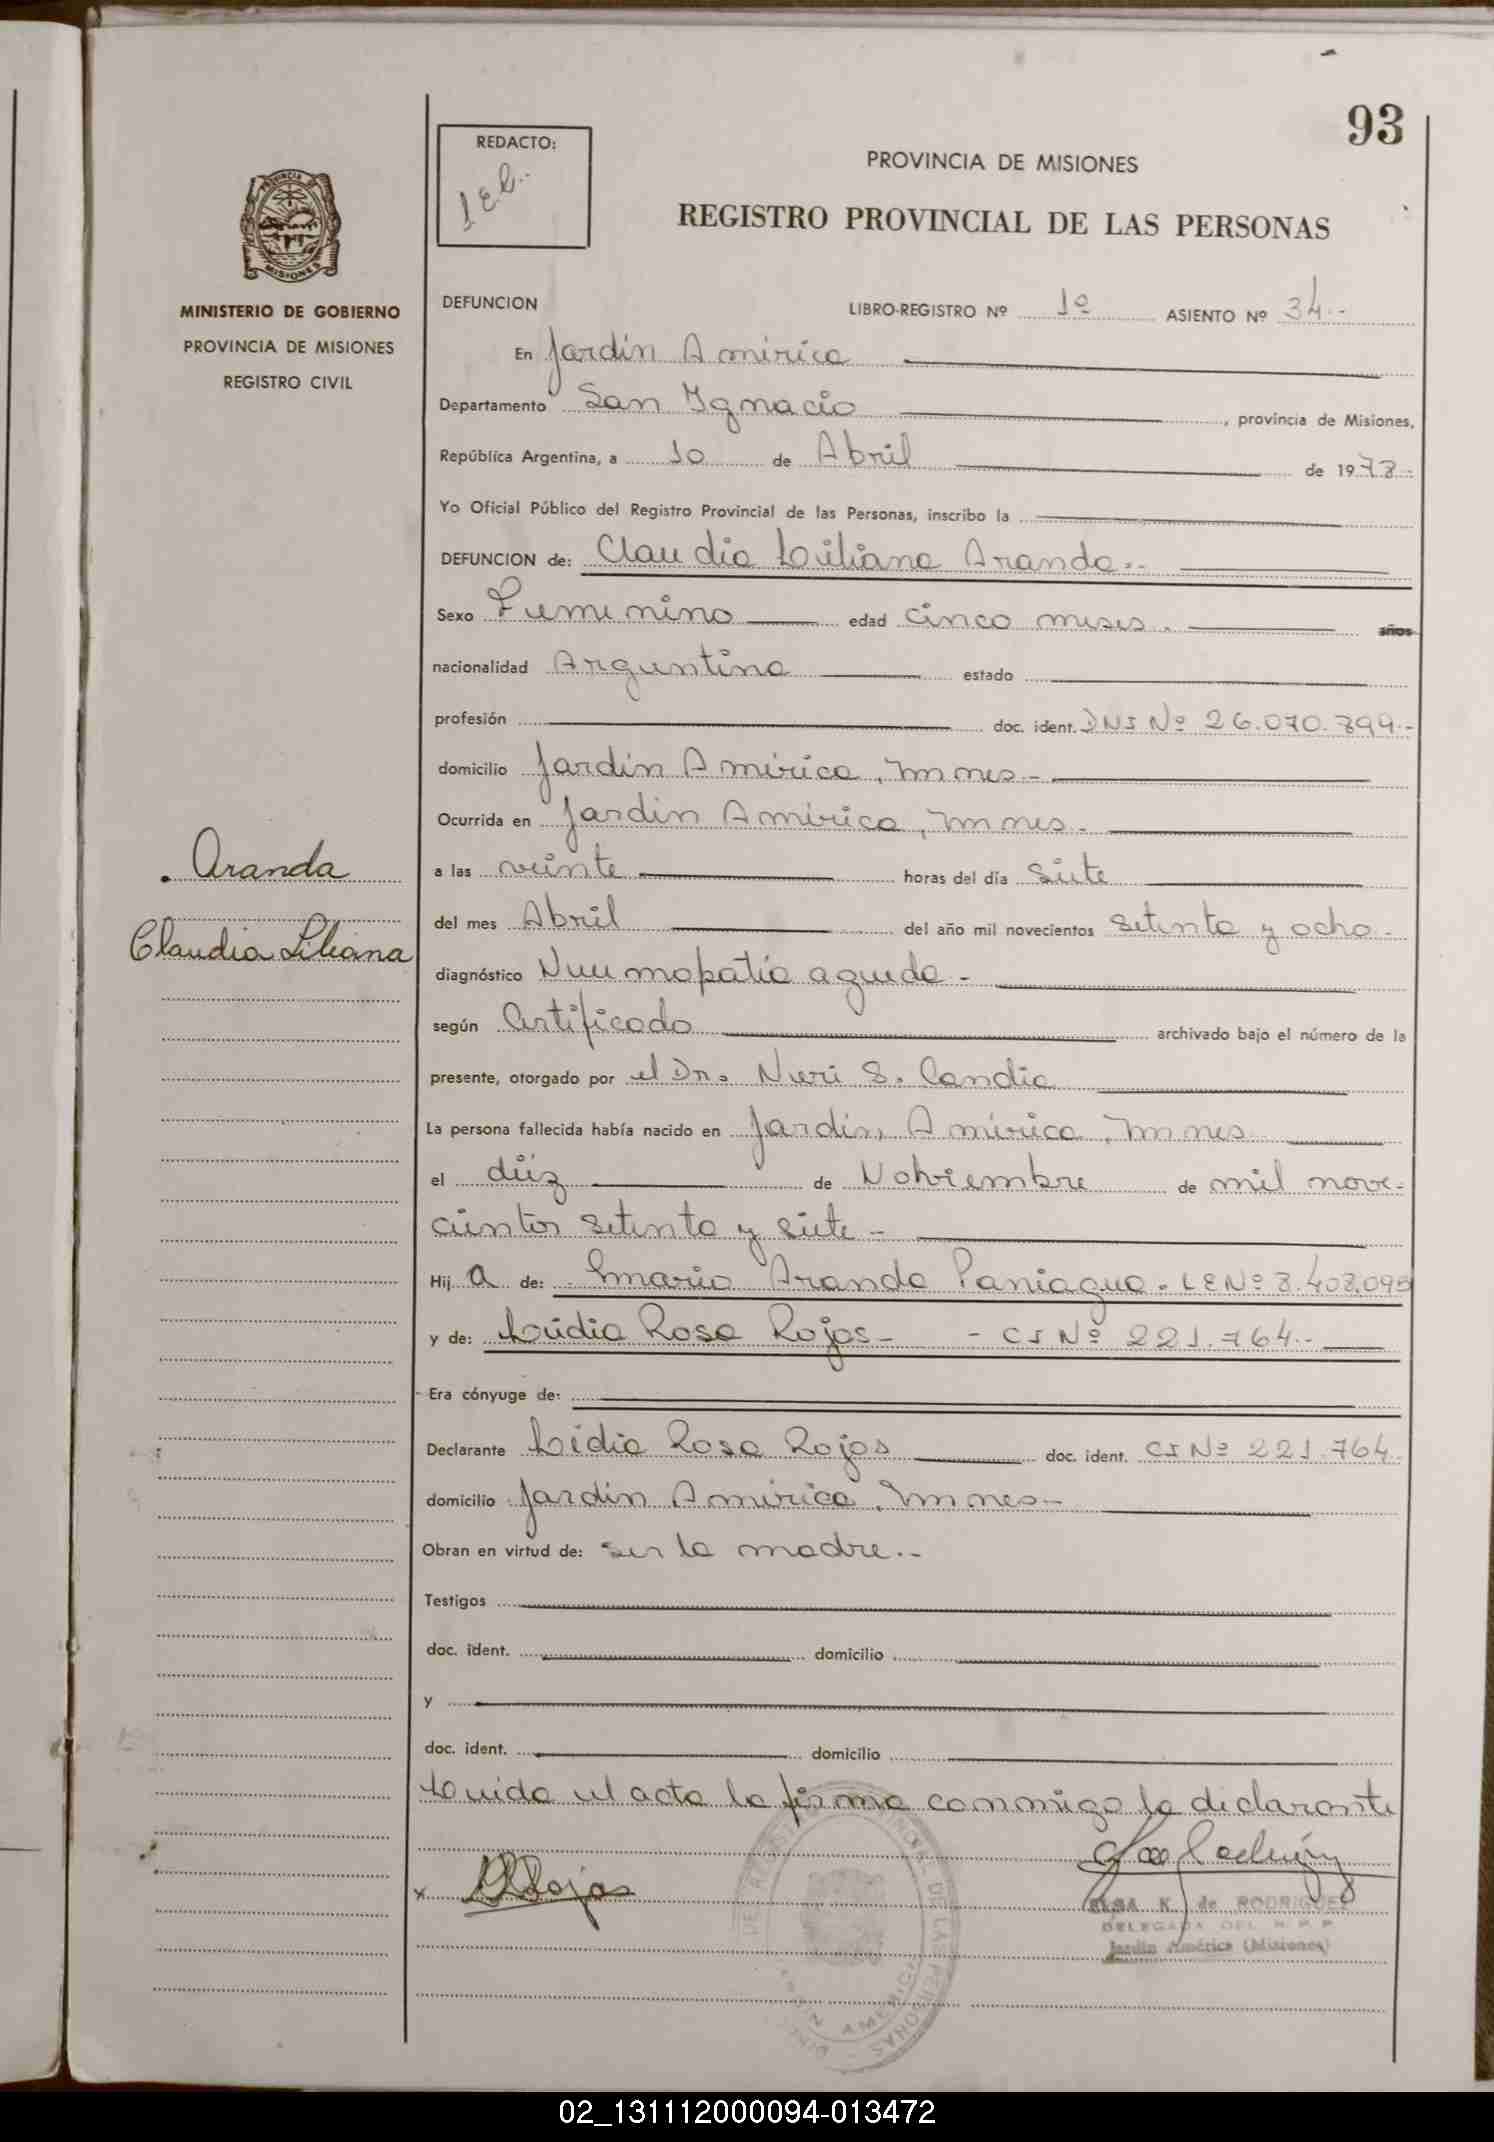 93
REDACTO:
PROVINCIA DE MISIONES
REGISTRO PROVINCIAL DE LAS PERSONAS
PROVINCIA DE
MISIONES
MINISTERIO DE GOBIERNO
PROVINCIA DE MISIONES
REGISTRO CIVIL
DEFUNCION LIBRO-REGISTRO Nº 1º ASIENTO Nº 34.-
En Jardín América
Departamento San Ignacio, provincia de Misiones,
República Argentina, a 10 de Abril de 1978.-
Yo Oficial Público del Registro Provincial de las Personas, inscribo la
DEFUNCION de: Claudia Liliana Aranda.-
Sexo Femenino edad cinco meses. años
nacionalidad Argentina estado
profesión doc. ident. DNI Nº 26.070.899.-
domicilio Jardín América, Mnes.-
Ocurrida en Jardín América, Mnes.
Aranda
Claudia Liliana
a las veinte horas del día siete
del mes Abril del año mil novecientos setenta y ocho.-
diagnóstico Neumopatía aguda.-
según Certificado archivado bajo el número de la
presente, otorgado por el Dr. Neri S. Candia
La persona fallecida había nacido en Jardín América, Mnes
el diez de Noviembre de mil nove-
cientos setenta y siete.-
Hij a de: Mario Aranda Paniagua. LE Nº 8.408.095
y de: Lidia Rosa Rojas.- - CI Nº 221.764.-
Era cónyuge de:
Declarante Lidia Rosa Rojas doc. ident. CI Nº 221.764.
domicilio Jardín América, Mnes.-
Obran en virtud de: ser la madre.-
Testigos
doc. ident. domicilio
y
doc. ident. domicilio
Leída el acta la firma conmigo la declarante
x Rojas
de RODRIGUEZ
DELEGADA DEL R. P. P.
Jardín América (Misiones)
02_131112000094-013472